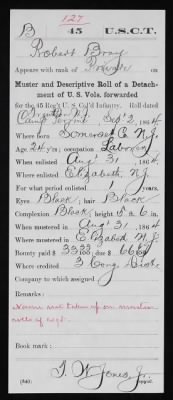 127
B 45 U.S.C.T.
Robert Bray
Appears with rank of Private on
Muster and Descriptive Roll of a Detach-
ment of U. S. Vols. forwarded
for the 45 Reg't U. S. Col'd Infantry. Roll dated
Trenton N.J.
Sept 2, 1864
Where born Somerset Co N.J.
Age 24 y'rs; occupation Laborer
When enlisted Aug 31, 1864
Where enlisted Elizabeth, N.J.
For what period enlisted years.
Eyes Black; hair Black
Complexion Black; height 5 ft. 6 in.
When mustered in Aug 31, 1864
Where mustered in Elizabeth N.J.
Bounty paid $ 33 33/100; due $ 66 67/100
Where credited 3 Cong. Dist.
Company to which assigned
Remarks:
Name not taken up on muster
rolls of co.
Book mark:
J. W. Jones, Jr.
(340) Copyist.